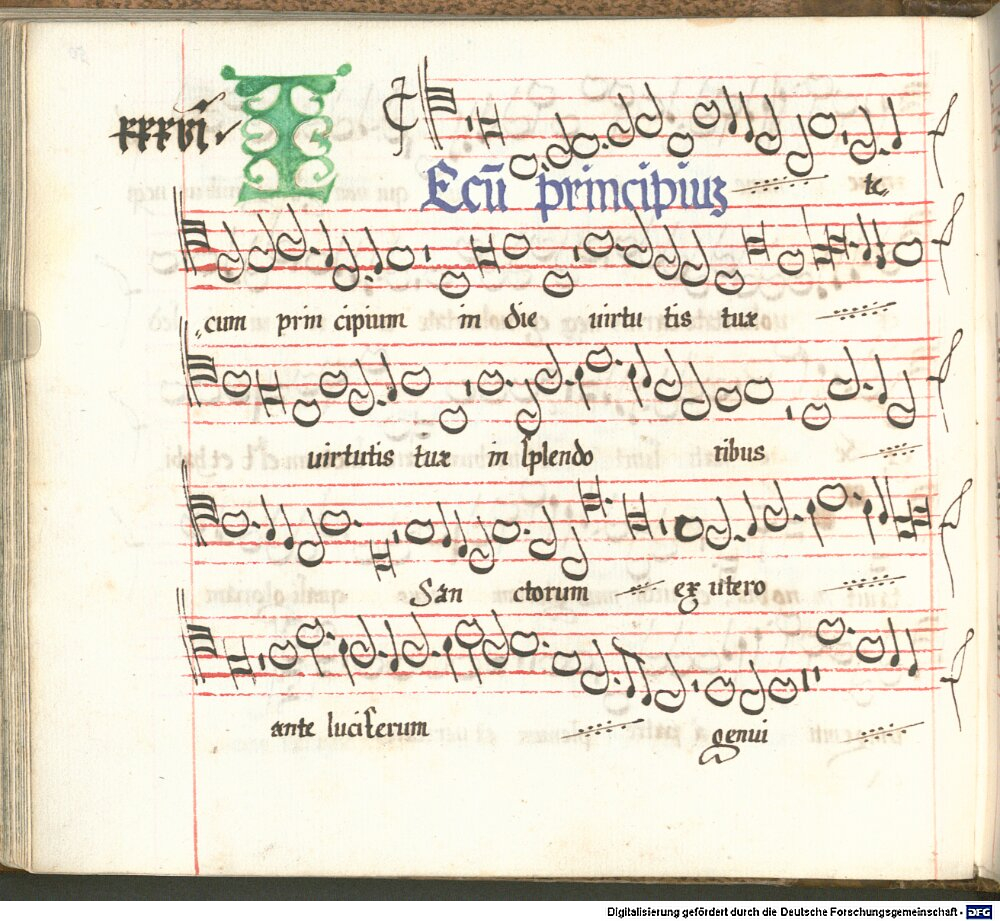 xxxvi
TEcū principiuʒ te
cum prin cipium in die uirtu tis tuæ
uirtutis tuæ in splendo ribus
San ctorum ex utero
ante luciferum genui
Digitalisierung gefördert durch die Deutsche Forschungsgemeinschaft - DFG